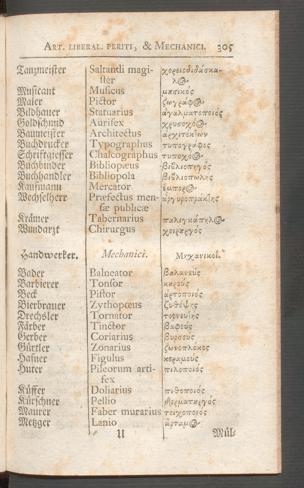 ART. LIBERAL. PERITI, & MECHANICI. 305
Tanzmeister Saltandi magi- χορειοδιδάσκα-
ster λ⊙.
Musicant Musicus μουσικός
Maler Pictor ζωγράφ⊙.
Bildhauer Statuarius ἀγαλματοποιός
Goldschmid Aurifex χρυσοχό⊙.
Baumeister Architectus ἀρχιτέκτων
Buchdrucker Typographus τυπογράφος
Schriftgiesser Chalcographus τυποχό⊙.
Buchbinder Bibliopœus βιβλιοπηγός
Buchhandler Bibliopola βιβλιοπώλης
Kaufmann Mercator ἔμπορ⊙.
Wechselherr Præfectus men- ἀργυροπράκτης
sæ publicæ
Krämer Tabernarius παλιγκάπηλ⊙.
Wundarzt Chirurgus χειρεργός
Handwerker. Mechanici. Μηχανικοί.
Bader Balneator βαλανεύς
Barbierer Tonsor κουρεύς
Beck Pistor ἀρτοποιός
Bierbrauer Zythopœus ζυθέψης
Drechsler Tornator τορνευτής
Färber Tinctor βαφεύς
Gerber Coriarius βυρσεύς
Gürtler Zonarius ζωνοπλόκος
Hafner Figulus κεραμεύς
Huter Pileorum arti- πιλοποιός
fex
Küffer Doliarius πιθοποιός
Kürschner Pellio
Maurer Faber murarius τειχοποιός
Metzger Lanio ἄρταμ⊙.
U Mül-